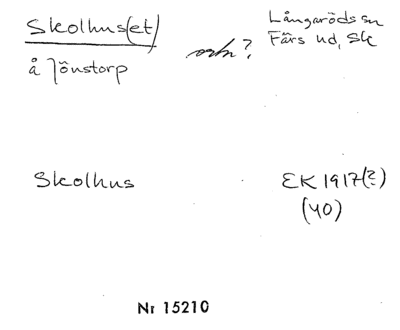 Skolhus(et)
å Jönstorp
ortn?
Långaröds sn
Färs hd, Sk
Skolhus
EK 1917(?)
(40)
Nr 15210